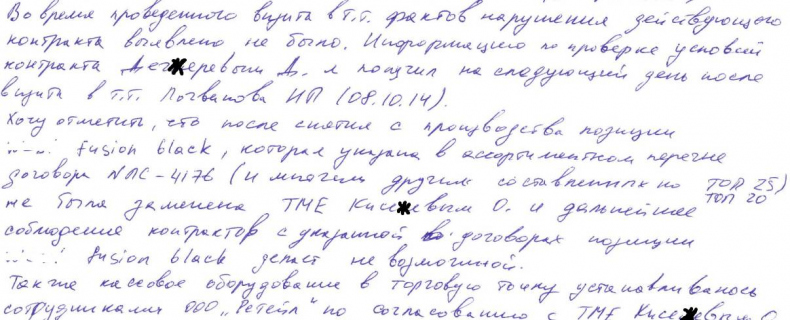 Во время проведенного визита в т.т. фактов нарушения действующего
контракта выявлено не было. Информацию по проверке условий
контракта Дег еревым Д. я получил на следующий день после
визита в т.т. Логвинова ИП (08.10.14).
Хочу отметить, что после снятия с производства позиции
fusion black, которая указана в ассортиментном перечне
договора №ЛС-4176 (и многим другим составленных по ТОП 25)
ТОП 20
не была заменена ТМЕ Кисе евым О. и дальнейшее
соблюдение контрактов с указанной в договорах позиции
fusion black делает не возможной.
Также кассовое оборудование в торговую точку устанавливалось
сотрудниками ООО "Ретейл" по согласованию с ТМЕ Кисе евым О